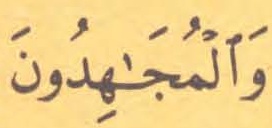 وَٱلْمُجَـٰهِدُونَ